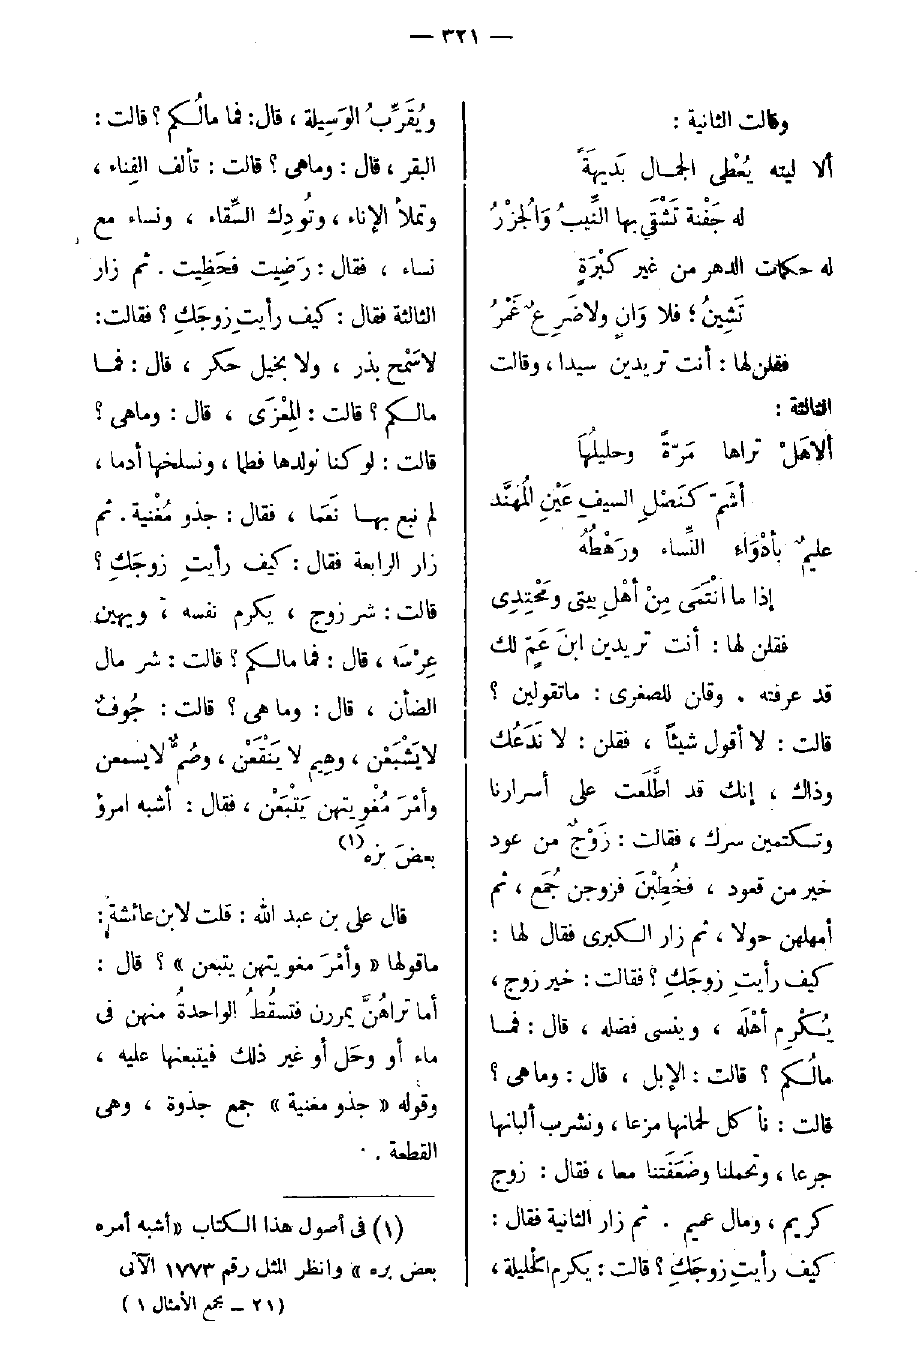 — ٣٢١ —
وقالت الثانية :
ألا ليته يُعْطِي الجمـال بَدِيهَةً
له جَفْنَة تَشْقَى بها النِّيبُ وَالْجُزْرُ
له حكمات الدهر من غير كَبْرَةٍ
تَشِينُ ؛ فلا وَانٍ ولا ضَرِعٌ غَمْرُ
فقلن لها : أنت تريدين سيدا ، وقالت
الثالثة :
ألاهَلْ تراها مَرّةً وحليلُهَا
أشَمّ كَنَصْلِ السيفِ عَيْنِ الْمُهَنَّد
عليمٌ بأَدْوَاء النِّساء ورَهْطُهُ
إذا ما انْتَمَى مِنْ أهْلِ بيتى ومَحْتِدِى
فقلن لها : أنت تريدين ابنَ عَمّ لك
قد عرفته . وقلن للصغرى : ماتقولين ؟
قالت : لا أقول شيئاً ، فقلن : لا نَدَعُك
وذاك ، إنك قد اطَّلَعت على أسرارنا
وتكتمين سرك ، فقالت : زَوْجٌ من عود
خير من قعود ، فخُطِبْنَ فزوجن جُمَع ، ثم
أمهلهن حولا ، ثم زار الكبرى فقال لها :
كيف رأيتِ زوجَكِ ؟ فقالت : خير زوج ،
يُكْرِم أهْلَه ، وينسى فضله ، قال : فمـا
مالُكم ؟ قالت : الإبل ، قال : وماهى ؟
قالت : نأكل لحمانها مزعا ، ونشرب ألبانها
جرعا ، وتحملنا وضَعَفَتَنا معا ، فقال : زوج
كريم ، ومال عميم . ثم زار الثانية فقال :
كيف رأيتِ زوجَكِ ؟ قالت : يكرم الحليلة ،
ويُقَرِّبُ الوَسِيلة ، قال : فما مالُكم ؟ قالت :
البقر ، قال : وماهى ؟ قالت : تألف الفِناء ،
وتملأ الإناء ، وتُودِك السِّقاء ، ونساء مع
نساء ، فقال : رَضِيت فحَظِيت . ثم زار
الثالثة فقال : كيف رأيتِ زوجَكِ ؟ فقالت :
لاسَمْح بذر ، ولا بخيل حكر ، قال : فمـا
مالكم ؟ قالت : المِعْزَى ، قال : وماهى ؟
قالت : لو كنا نولدها فطما ، ونسلخها أدما ،
لم نبع بهـا نَعَما ، فقال : جذو مُغْنية . ثم
زار الرابعة فقال : كيف رأيتِ زوجَكِ ؟
قالت : شر زوج ، يكرم نفسه ، ويهين
عِرْسَه ، قال : فما مالكم ؟ قالت : شر مال
الضأن ، قال : وما هى ؟ قالت : جُوفٌ
لايَشْبَعْن ، وهِيم لا يَنْقَعْن ، وصُمٌّ لايسمعن
وأمْرَ مُغْوِيتهن يَتْبَعْن ، فقال : أشبه امرؤ
بعضَ بزه (١)
قال على بن عبد الله : قلت لابن عائشة :
ماقولها « وأمْرَ مغويتهن يتبعن » ؟ قال :
أما تراهُنَّ يمررن فتسقُطُ الواحدةُ منهن فى
ماء أو وحَل أو غير ذلك فيتبعنها عليه ،
وقوله « جذو مغنية » جمع جذوة ، وهى
القطعة .
(١) فى أصول هذا الكتاب « أشبه أمره
بعض بره » وانظر المثل رقم ١٧٧٣ الآتى
(٢١ — مجمع الأمثال ١)